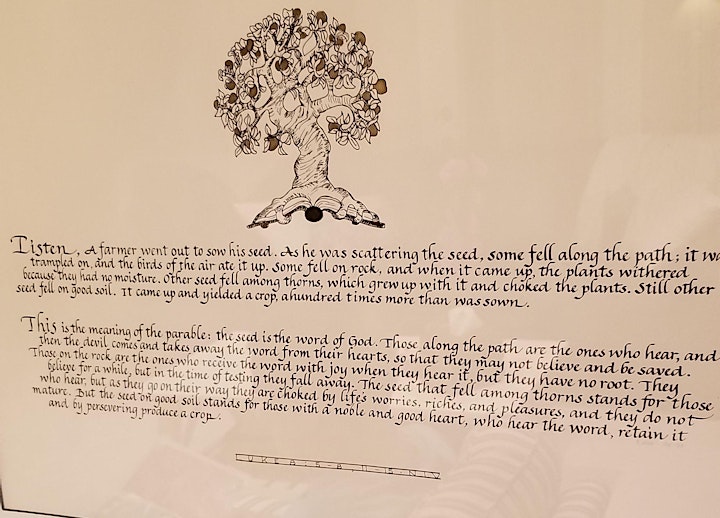 Listen, A farmer went out to sow his seed. As he was scattering the seed, some fell along the path; it wa
trampled on, and the birds of the air ate it up. Some fell on rock, and when it came up, the plants withered
because they had no moisture. Other seed fell among thorns, which grew up with it and choked the plants. Still other
seed fell on good soil. It came up and yielded a crop, a hundred times more than was sown.
This is the meaning of the parable: the seed is the word of God. Those along the path are the ones who hear, and
then the devil comes and takes away the word from their hearts, so that they may not believe and be saved.
Those on the rock are the ones who receive the word with joy when they hear it, but they have no root. They
believe for a while, but in the time of testing they fall away. The seed that fell among thorns stands for those
who hear, but as they go on their way they are choked by life's worries, riches, and pleasures, and they do not
mature. But the seed on good soil stands for those with a noble and good heart, who hear the word, retain it
and by persevering produce a crop.
LUKE 8:5-8, 11-15 NIV